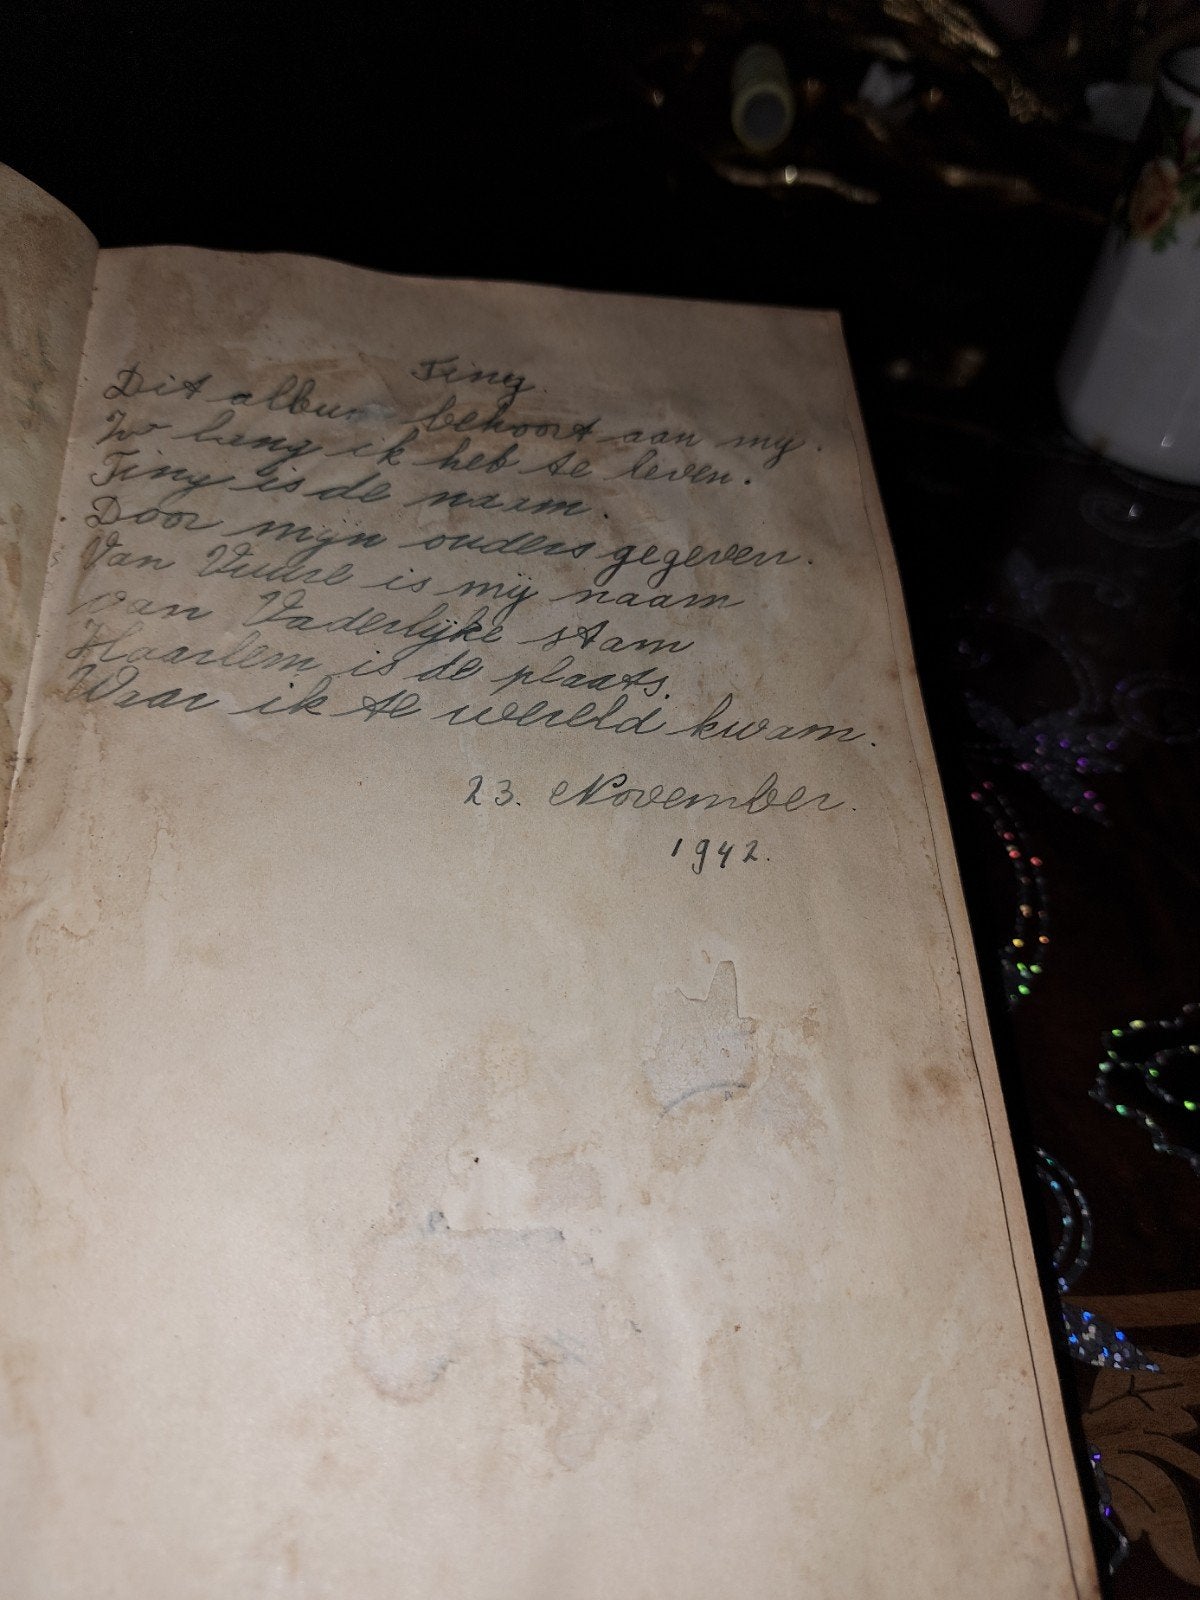 Tiny.
Dit album behoort aan my.
Zo lang ik heb te leven.
Tiny is de naam.
Door mijn ouders gegeven.
Van Vuure is mij naam
van Vaderlijke stam
Haarlem is de plaats.
Waar ik te wereld kwam.
23. November.
1942.